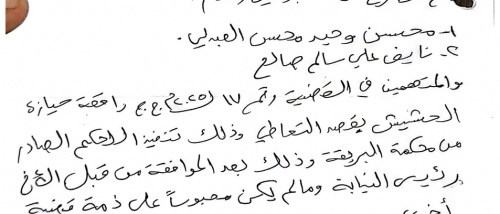 ١- محسن وحيد محسن العبدلي .
٢- نايف علي سالم صالح
والمتهمين في القضية رقم ١٧ لسنة ٢٠٢٥م ج.ج واقعة حيازة
الحشيش بقصد التعاطي وذلك تنفيذ الحكم الصادر
من محكمة البريقة وذلك بعد الموافقة من قبل الأخ
رئيس النيابة ومالم يكن محبوساً على ذمة قضية
أخرى